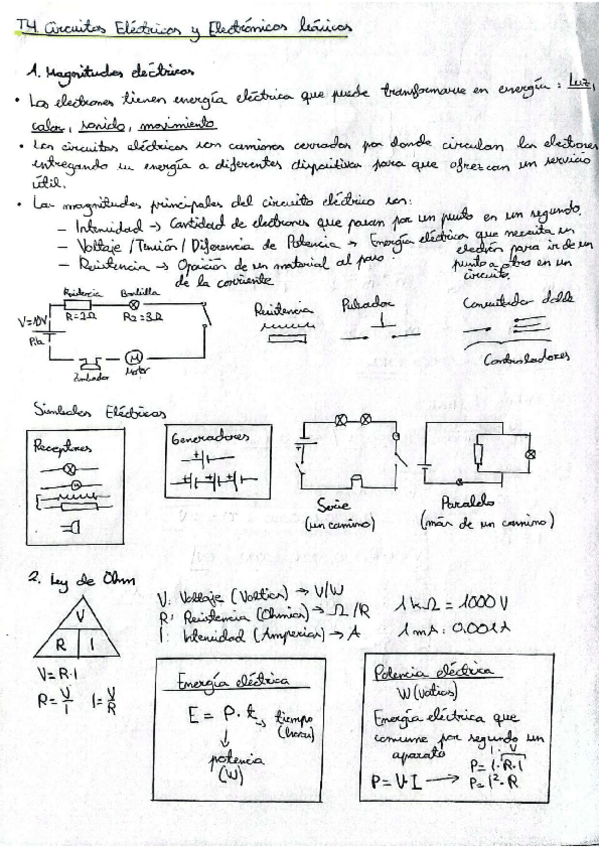 T4. Circuitos Eléctricos y Electrónicos teóricos
1. Magnitudes eléctricas
• Los electrones tienen energía eléctrica que puede transformarse en energía: Luz,
calor, sonido, movimiento
• Los circuitos eléctricos son caminos cerrados por donde circulan los electrones
entregando su energía a diferentes dispositivos para que ofrezcan un servicio
útil.
• Las magnitudes principales del circuito eléctrico son:
– Intensidad → Cantidad de electrones que pasan por un punto en un segundo.
– Voltaje / Tensión / Diferencia de Potencia → Energía eléctrica que necesita un
electrón para ir de un
punto a otro en un
circuito.
– Resistencia → Oposición de un material al paso
de la corriente
Resistencia Bombilla
R=2Ω R2=3Ω
V=10V
Pila
Zumbador
M
Motor
Resistencia Pulsador Conmutador doble
Controladores
Símbolos Eléctricos
Receptores
Generadores
Serie
(un camino)
Paralelo
(más de un camino)
2. Ley de Ohm
V
R I
V=R·I
R=V/I I=V/R
V: Voltaje (Voltios) → V/W
R: Resistencia (Ohmios) → Ω/R
I: Intensidad (Amperios) → A
1kΩ = 1000V
1mA: 0,001A
Energía eléctrica
E = P · t → tiempo
(horas)
potencia
(W)
Potencia eléctrica
W (Vatios)
Energía eléctrica que
consume por segundo un
aparato
I · V
P=I·R·I
P=V·I → P=I²·R